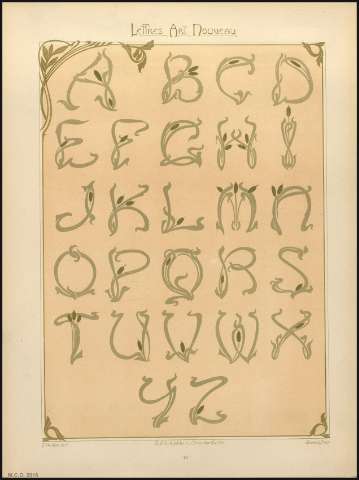 Lettres Art Nouveau
A B C D
E F G H I
J K L M N
O P Q R S
T U V W X
Y Z